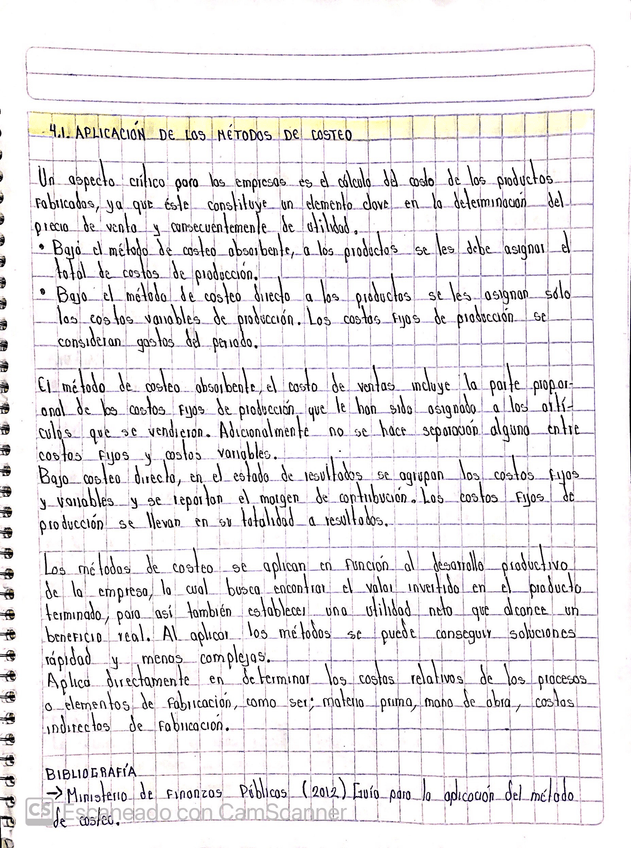 4.1. APLICACIÓN DE LOS MÉTODOS DE COSTEO
Un aspecto crítico para las empresas es el cálculo del costo de los productos
fabricados, ya que éste constituye un elemento clave en la determinación del
precio de venta y consecuentemente de utilidad.
• Bajo el método de costeo absorbente, a los productos se les debe asignar el
total de costos de producción.
• Bajo el método de costeo directo a los productos se les asignan sólo
los costos variables de producción. Los costos fijos de producción se
consideran gastos del periodo.
El método de costeo absorbente, el costo de ventas incluye la parte propor-
onal de los costos fijos de producción, que le han sido asignado a los artí-
culos que se vendieron. Adicionalmente no se hace separación alguna entre
costos fijos y costos variables.
Bajo costeo directo, en el estado de resultados se agrupan los costos fijos
y variables y se reportan el margen de contribución. Los costos fijos de
producción se llevan en su totalidad a resultados.
Los métodos de costeo se aplican en función al desarrollo productivo
de la empresa, la cual busca encontrar el valor invertido en el producto
terminado, para así también establecer una utilidad neta que alcance un
beneficio real. Al aplicar los métodos se puede conseguir soluciones
rápidad y menos complejas.
Aplica directamente en determinar los costos relativos de los procesos
o elementos de fabricación, como ser; materia prima, mano de obra, costos
indirectos de fabricación.
BIBLIOGRAFÍA
→ Ministerio de Finanzas Públicas (2012) Guía para la aplicación del método
de costeo.
CS Escaneado con CamScanner